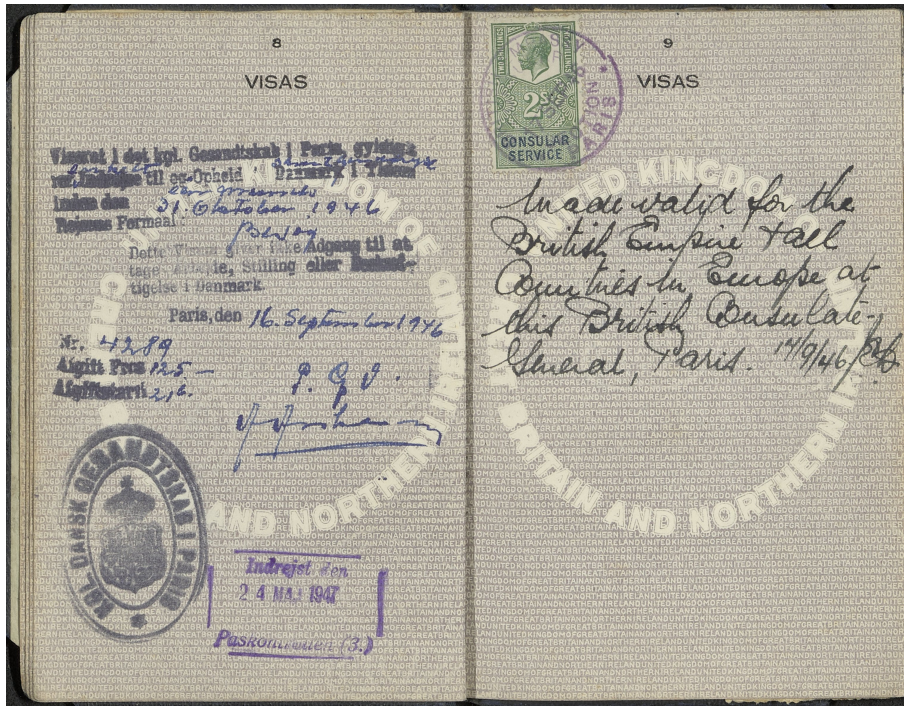 8
VISAS
Visaret i det kgl. Gesandtskab i Paris, gyldigt
til Ophold i Danmark i
inden den 31. Oktober 1946
Rejsens Formaal: Besøg
Dette Visum giver ikke Adgang til at
tage Arbejde, Stilling eller Beskæf-
tigelse i Danmark
Paris, den 16. September 1946
Nr. 4289
Afgift Frcs 125 —
Afgiftstarif 2,6.
P. G. V.
KGL. DANSK GESANDTSKAB I PARIS
Indrejst den
24 MAJ 1947
Paskontrollen (3.)
9
VISAS
TWO SHILLINGS
2s
CONSULAR
SERVICE
PARIS
Made valid for the
British Empire + all
Countries in Europe at
this British Consulate-
General, Paris. 14/9/46
UNITED KINGDOM OF GREAT BRITAIN AND NORTHERN IRELAND